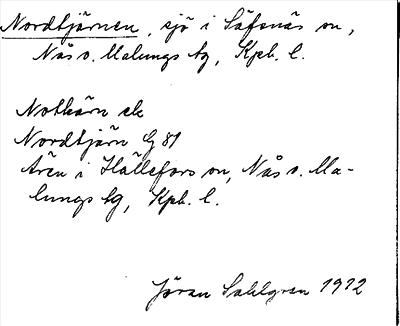 Nordtjärnen, sjö i Säfsnäs sn,
Nås o. Malungs tg, Kpb. l.
Notkärn ek
Nordtjärn G 81
Även i Hällefors sn, Nås o. Ma-
lungs tg, Kpb. l.
Jöran Sahlgren 1912